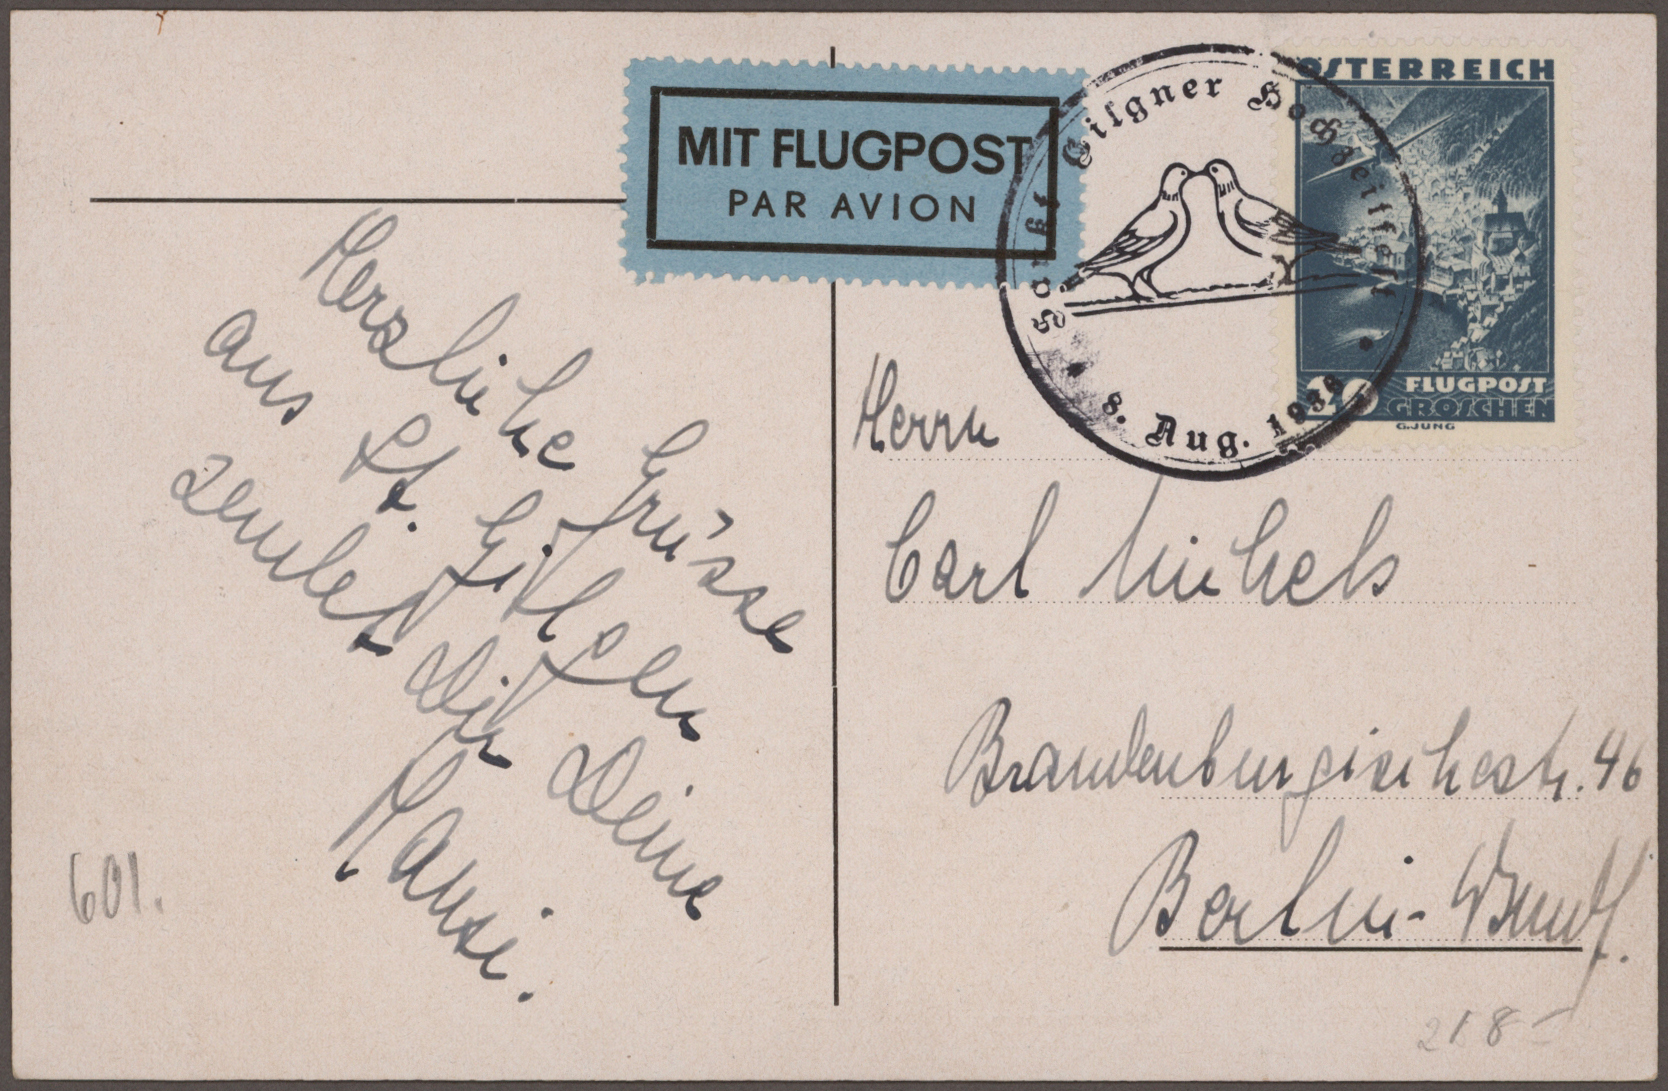 MIT FLUGPOST
PAR AVION
Sankt Gilgner Hochzeitsfest
8. Aug. 1936
ÖSTERREICH
20
FLUGPOST
GROSCHEN
G.JUNG
Herzliche Grüsse
aus St. Gilgen
sendet Dir Deine
Hansi.
601.
Herrn
Carl Michels
Brandenburgischestr. 46
Berlin-Wilmdf.
218-